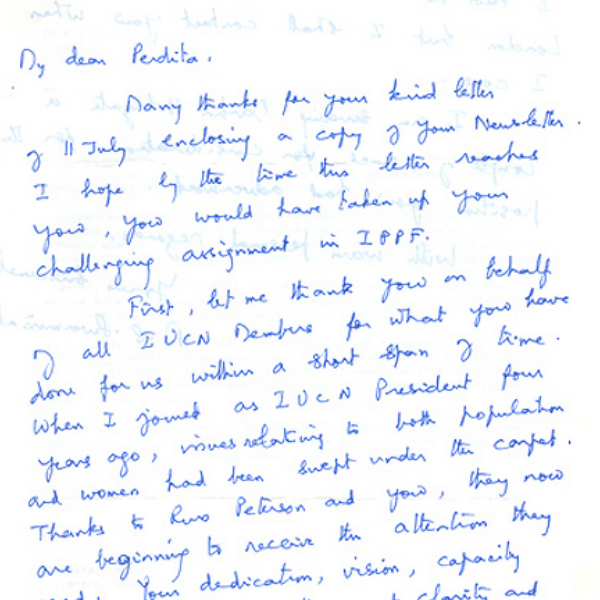 My dear Perdita,
Many thanks for your kind letter
of 11 July enclosing a copy of your Newsletter.
I hope by the time this letter reaches
you, you would have taken up your
challenging assignment in IPPF.
First, let me thank you on behalf
of all IUCN Members for what you have
done for us within a short span of time.
When I joined as IUCN President four
years ago, issues relating to both population
and women had been swept under the carpet.
Thanks to Russ Peterson and you, they now
are beginning to receive the attention they
need. Your dedication, vision, capacity
clarity and